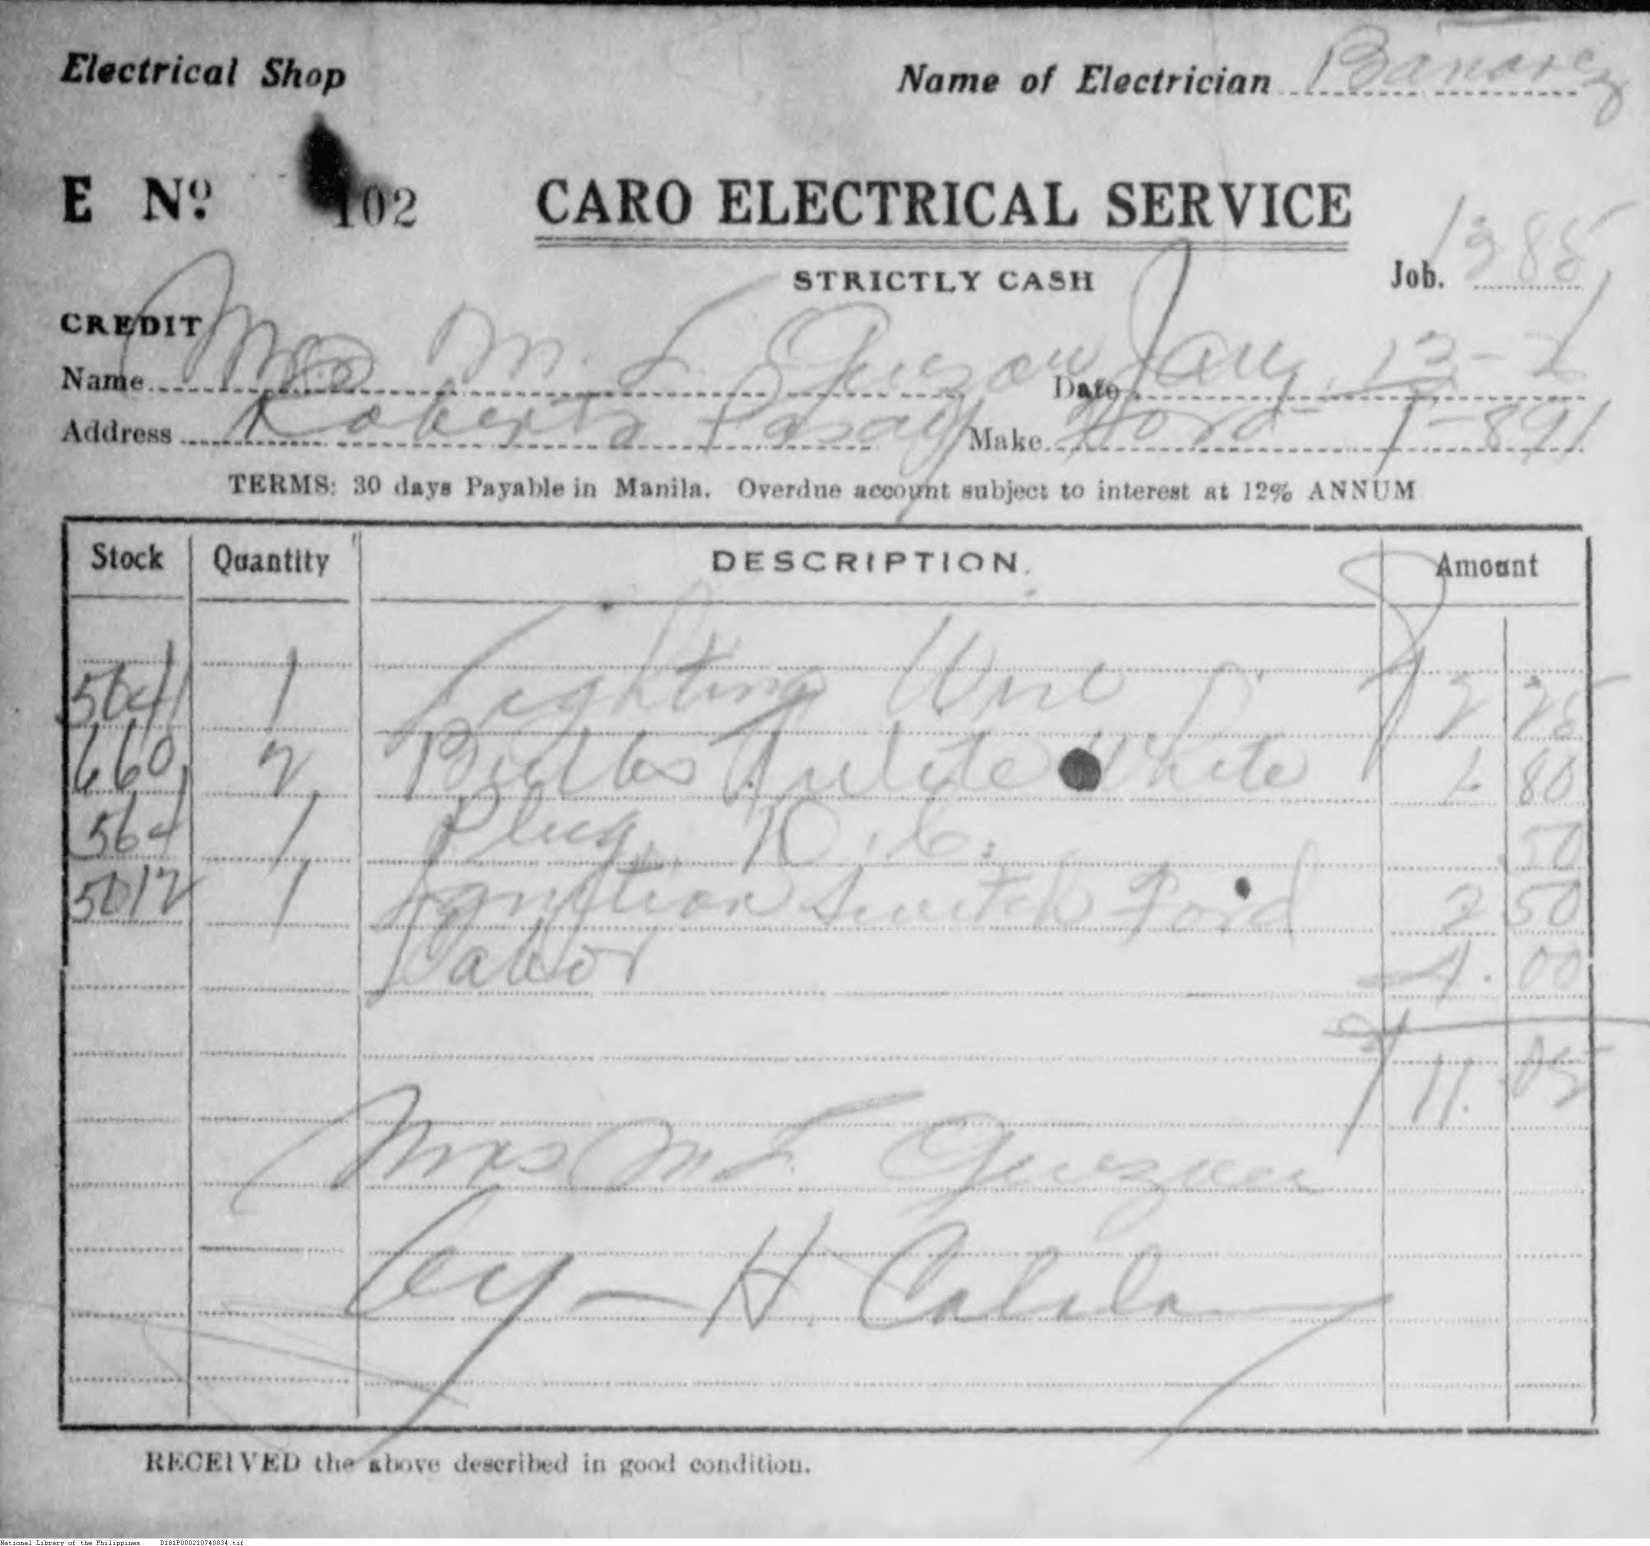 Electrical Shop
Name of Electrician Banarez
E Nº 102
CARO ELECTRICAL SERVICE
STRICTLY CASH
Job. 1385
CREDIT
Name Mrs M. L. Guzon Date Jan. 13-
Address Roberts Pasay Make Ford T-891
TERMS: 30 days Payable in Manila. Overdue account subject to interest at 12% ANNUM
Stock Quantity DESCRIPTION. Amount
5641 1 Lighting Wire 2 25
660 2 Bulbs White 1 80
564 1 Plug D.C. .50
5012 1 Ignition Switch Ford 2 50
Labor 4.00
11.05
Mrs M L Guzon
by - H. Calala
RECEIVED the above described in good condition.
National Library of the Philippines D181P000210740034.tif